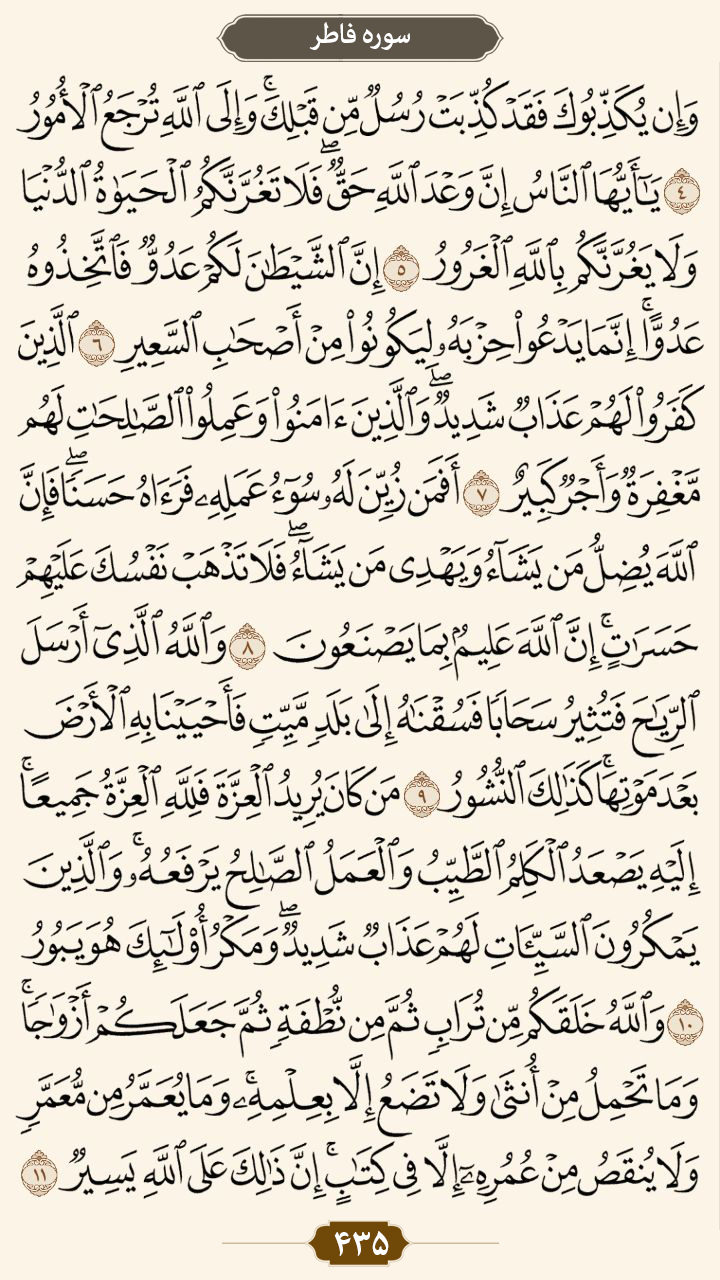 سوره فاطر
وَإِن يُكَذِّبُوكَ فَقَدْ كُذِّبَتْ رُسُلٌ مِّن قَبْلِكَ ۚ وَإِلَى ٱللَّهِ تُرْجَعُ ٱلْأُمُورُ
٤ يَـٰٓأَيُّهَا ٱلنَّاسُ إِنَّ وَعْدَ ٱللَّهِ حَقٌّ ۖ فَلَا تَغُرَّنَّكُمُ ٱلْحَيَوٰةُ ٱلدُّنْيَا
وَلَا يَغُرَّنَّكُم بِٱللَّهِ ٱلْغَرُورُ ٥ إِنَّ ٱلشَّيْطَـٰنَ لَكُمْ عَدُوٌّ فَٱتَّخِذُوهُ
عَدُوًّا ۚ إِنَّمَا يَدْعُوا۟ حِزْبَهُۥ لِيَكُونُوا۟ مِنْ أَصْحَـٰبِ ٱلسَّعِيرِ ٦ ٱلَّذِينَ
كَفَرُوا۟ لَهُمْ عَذَابٌ شَدِيدٌ ۖ وَٱلَّذِينَ ءَامَنُوا۟ وَعَمِلُوا۟ ٱلصَّـٰلِحَـٰتِ لَهُم
مَّغْفِرَةٌ وَأَجْرٌ كَبِيرٌ ٧ أَفَمَن زُيِّنَ لَهُۥ سُوٓءُ عَمَلِهِۦ فَرَءَاهُ حَسَنًا ۖ فَإِنَّ
ٱللَّهَ يُضِلُّ مَن يَشَآءُ وَيَهْدِى مَن يَشَآءُ ۖ فَلَا تَذْهَبْ نَفْسُكَ عَلَيْهِمْ
حَسَرَٰتٍ ۚ إِنَّ ٱللَّهَ عَلِيمٌۢ بِمَا يَصْنَعُونَ ٨ وَٱللَّهُ ٱلَّذِىٓ أَرْسَلَ
ٱلرِّيَـٰحَ فَتُثِيرُ سَحَابًا فَسُقْنَـٰهُ إِلَىٰ بَلَدٍ مَّيِّتٍ فَأَحْيَيْنَا بِهِ ٱلْأَرْضَ
بَعْدَ مَوْتِهَا ۚ كَذَٰلِكَ ٱلنُّشُورُ ٩ مَن كَانَ يُرِيدُ ٱلْعِزَّةَ فَلِلَّهِ ٱلْعِزَّةُ جَمِيعًا ۚ
إِلَيْهِ يَصْعَدُ ٱلْكَلِمُ ٱلطَّيِّبُ وَٱلْعَمَلُ ٱلصَّـٰلِحُ يَرْفَعُهُۥ ۚ وَٱلَّذِينَ
يَمْكُرُونَ ٱلسَّيِّـَٔاتِ لَهُمْ عَذَابٌ شَدِيدٌ ۖ وَمَكْرُ أُو۟لَـٰٓئِكَ هُوَ يَبُورُ
١٠ وَٱللَّهُ خَلَقَكُم مِّن تُرَابٍ ثُمَّ مِن نُّطْفَةٍ ثُمَّ جَعَلَكُمْ أَزْوَٰجًا ۚ
وَمَا تَحْمِلُ مِنْ أُنثَىٰ وَلَا تَضَعُ إِلَّا بِعِلْمِهِۦ ۚ وَمَا يُعَمَّرُ مِن مُّعَمَّرٍ
وَلَا يُنقَصُ مِنْ عُمُرِهِۦٓ إِلَّا فِى كِتَـٰبٍ ۚ إِنَّ ذَٰلِكَ عَلَى ٱللَّهِ يَسِيرٌ ١١
۴۳۵